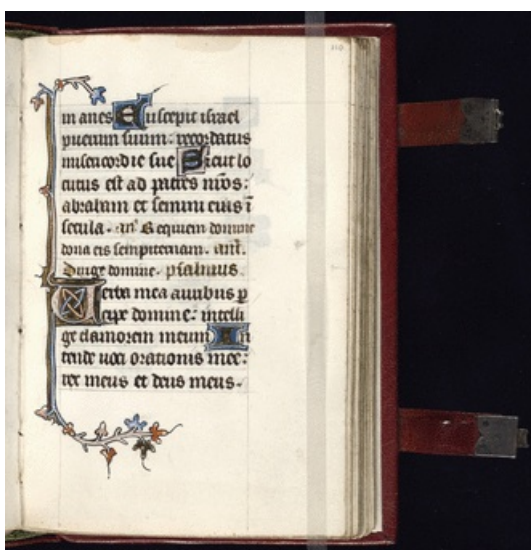 in anes Suscepit israel
puerum suum: recordatus
misericordie sue Sicut lo
cutus est ad patres nros:
abraham et semini eius i
secula. an' Requiem domine
dona eis sempiternam. ant.
Dirige domine. psalmus.
Verba mea auribus p
cipe domine: intelli
ge clamorem meum In
tende uoci orationis mee:
rex meus et deus meus.